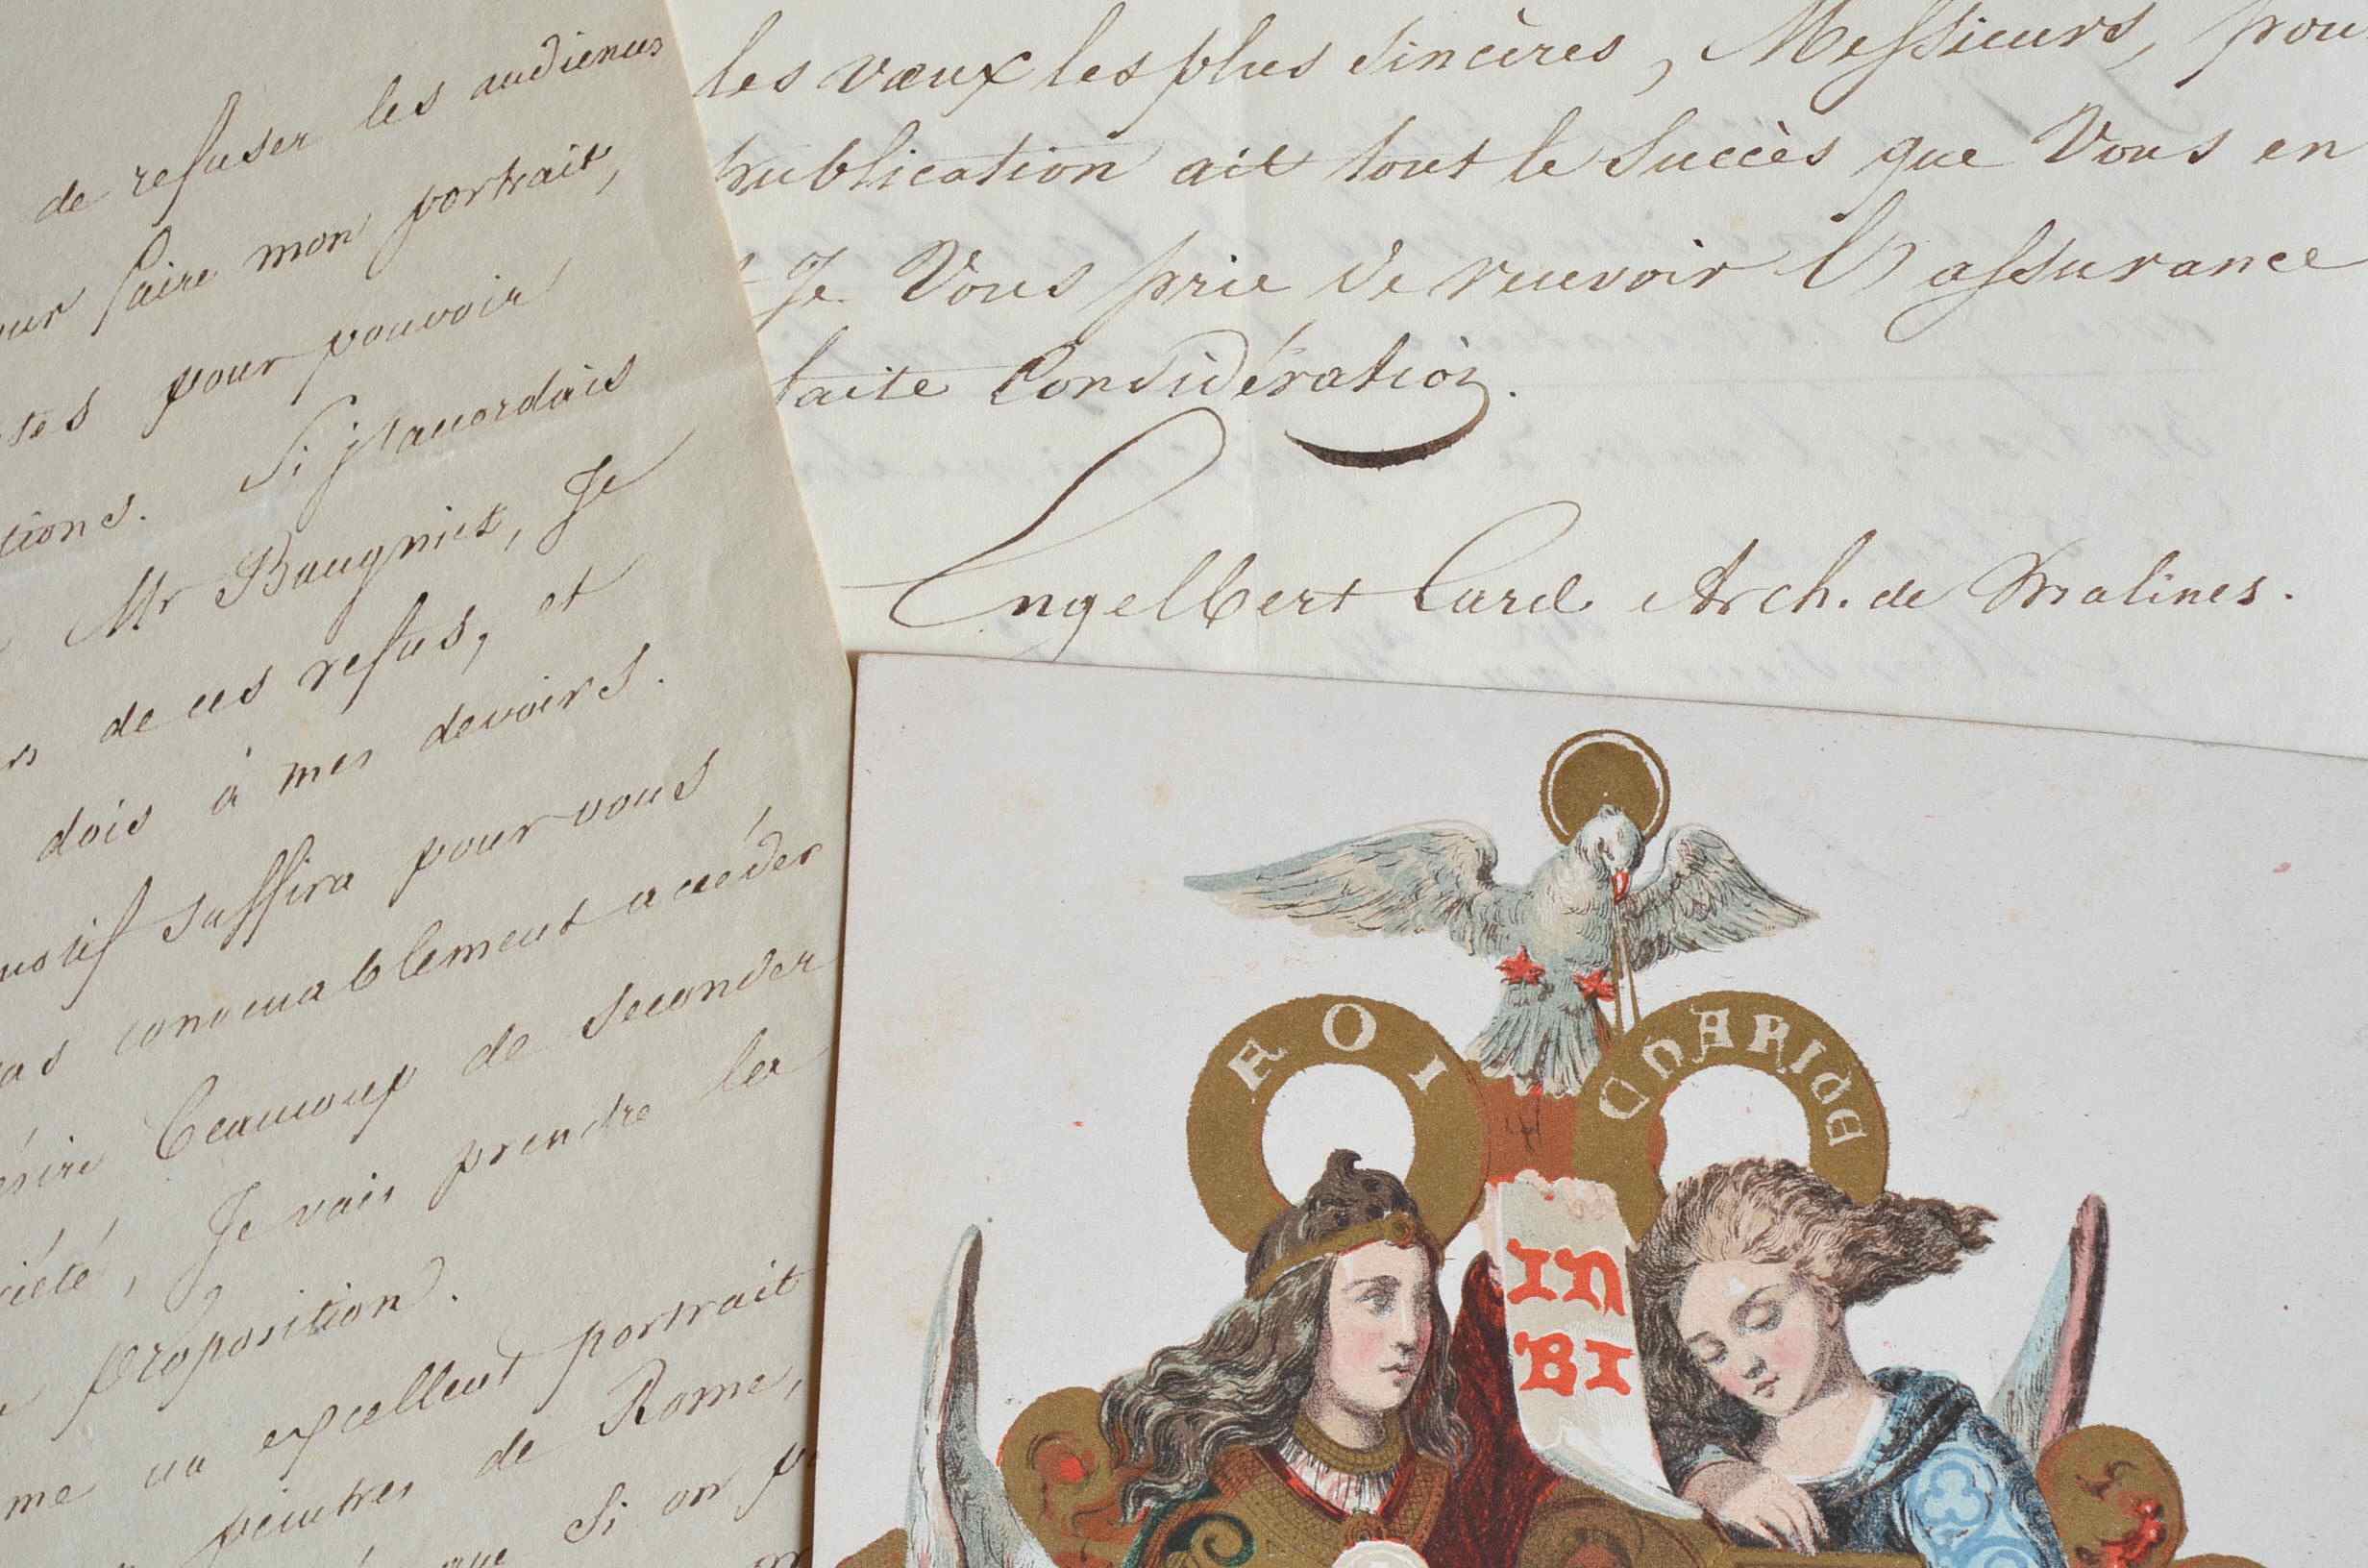 de refuser les audiences
faire mon portrait,
pour pouvoir
tions. Si j'accordais
Mr Baugniet, Je
de ces refus, et
dois à mes devoirs.
motif suffira pour vous
convenablement accéder
beaucoup de seconder
Je vais prendre la
proposition.
me un excellent portrait
peintres de Rome,
que Si on p
les vœux les plus sincères, Messieurs, pou
publication ait tout le Succès que Vous en
Je Vous prie de recevoir l'assurance
faite Considération.
Engelbert Card. Arch. de Malines.
FOI
CHARIDE
IN
BI